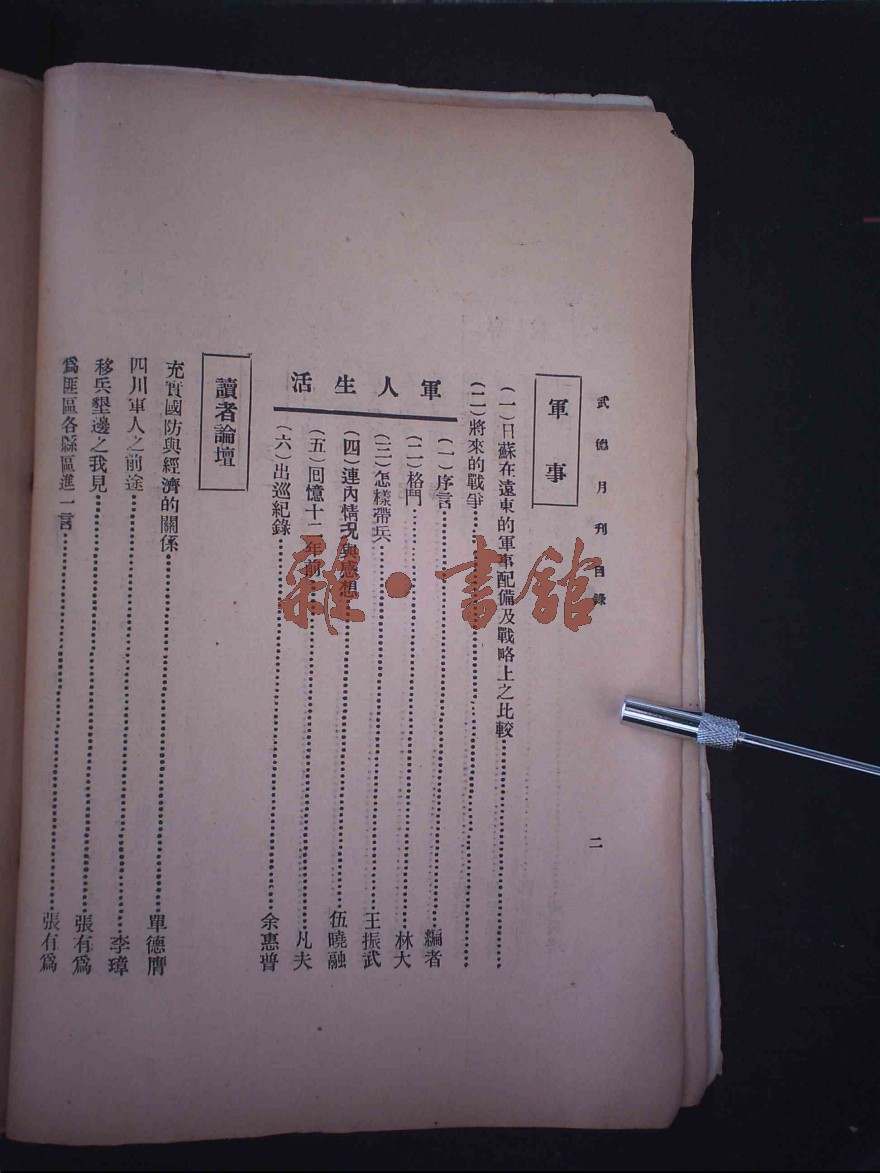 武德月刊目錄
二
軍事
(一)日蘇在遠東的軍事配備及戰略上之比較
(二)將來的戰爭
軍人生活
(一)序言 編者
(二)格鬥 林大
(三)怎樣帶兵 王振武
(四)連內情况與感想 伍曉融
(五)回憶十二年前 凡夫
(六)出巡紀錄 余惠普
讀者論壇
充實國防與經濟的關係 單德膺
四川軍人之前途 李璋
移兵墾邊之我見 張有爲
爲匪區各縣區進一言 張有爲
雜·書館